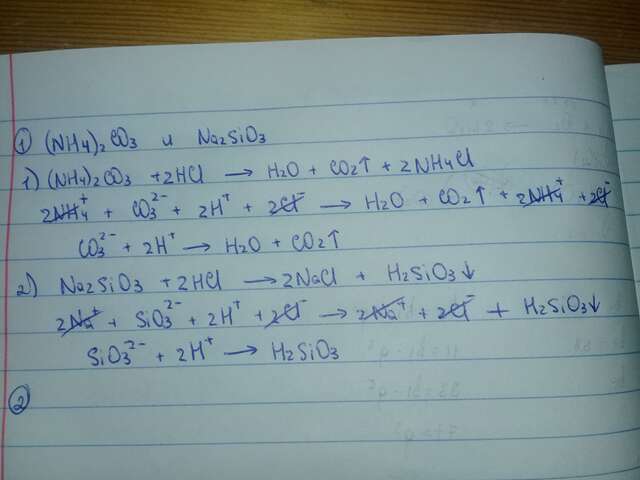 ① (NH4)₂CO3 и Na2SiO3
1) (NH4)₂CO3 + 2HCl → H2O + CO2↑ + 2NH4Cl
2NH4⁺ + CO3²⁻ + 2H⁺ + 2Cl⁻ → H2O + CO2↑ + 2NH4⁺ + 2Cl⁻
CO3²⁻ + 2H⁺ → H2O + CO2↑
2) Na2SiO3 + 2HCl → 2NaCl + H2SiO3↓
2Na⁺ + SiO3²⁻ + 2H⁺ + 2Cl⁻ → 2Na⁺ + 2Cl⁻ + H2SiO3↓
SiO3²⁻ + 2H⁺ → H2SiO3
②